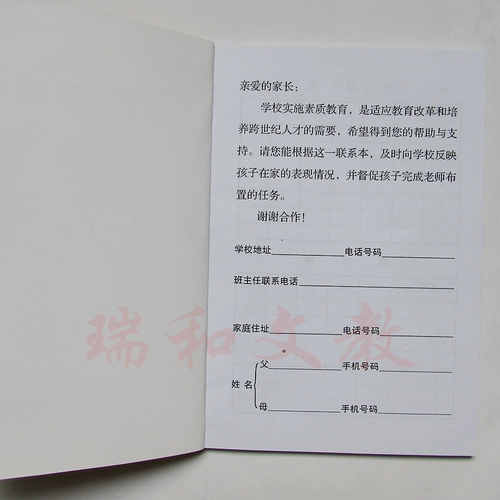 亲爱的家长：
学校实施素质教育，是适应教育改革和培
养跨世纪人才的需要，希望得到您的帮助与支
持。请您能根据这一联系本，及时向学校反映
孩子在家的表现情况，并督促孩子完成老师布
置的任务。
谢谢合作！
学校地址____________电话号码____________
班主任联系电话____________
家庭住址____________电话号码____________
父____________手机号码____________
姓 名
母____________手机号码____________
瑞和文教